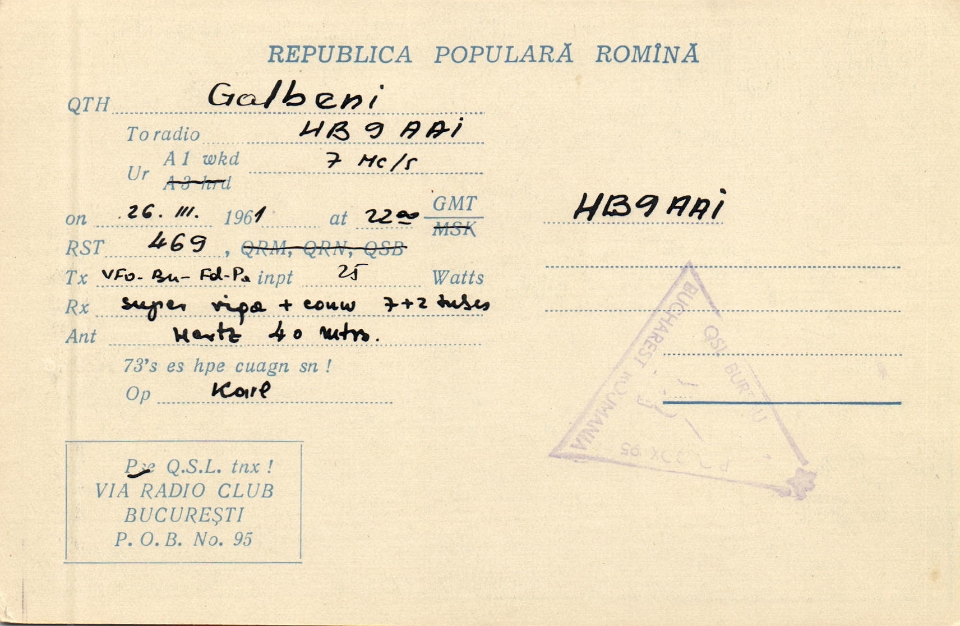 REPUBLICA POPULARĂ ROMÎNĂ
QTH Galbeni
To radio HB9AAI
Ur A1 wkd 7 Mc/s
A3 hrd
on 26. III. 1961 at 22 00 GMT
MSK
RST 469, QRM, QRN, QSB
Tx VFO-Bu-Fd-Pa inpt 25 Watts
Rx super + 7+2 tubes
Ant Hertz 40 mtrs.
73's es hpe cuagn sn!
Op Karl
HB9AAI
QSL BUREAU
BUCHAREST ROUMANIA
P.O. BOX 95
Pse Q.S.L. tnx!
VIA RADIO CLUB
BUCUREŞTI
P.O.B. No. 95